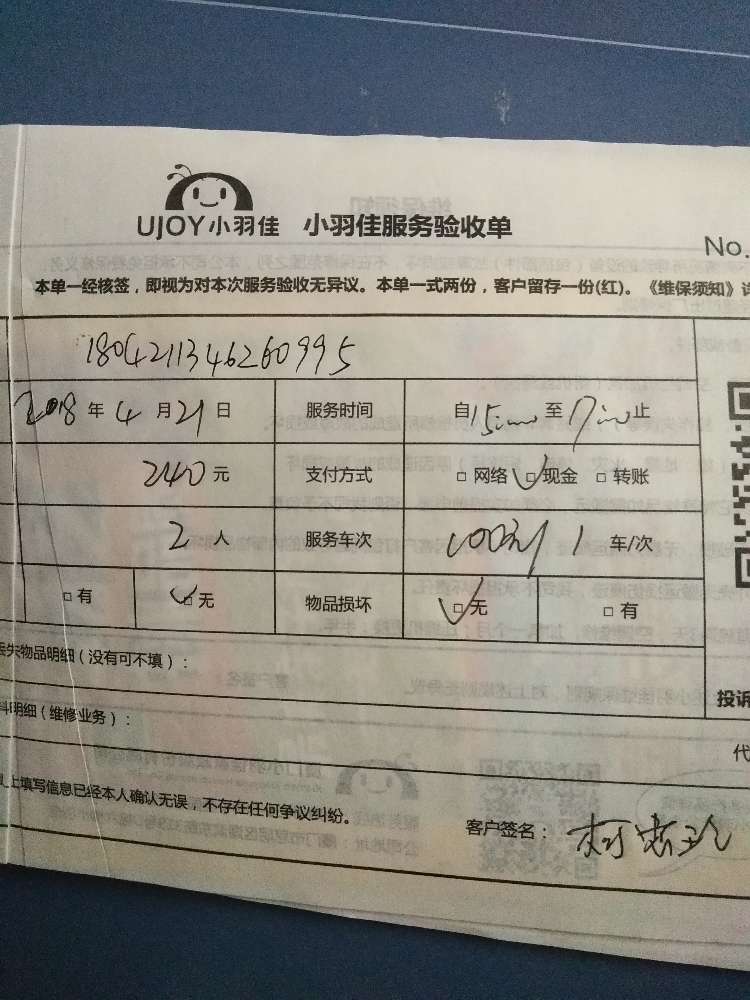 UJOY小羽佳 小羽佳服务验收单
No.
本单一经核签，即视为对本次服务验收无异议。本单一式两份，客户留存一份(红)。《维保须知》
1804211346260995
2018 年 4 月 21 日 服务时间 自 15 至 17 止
240 元 支付方式 □ 网络 □ 现金 □ 转账
2 人 服务车次 1 车/次
□ 有 □ 无 物品损坏 □ 无 □ 有
失物品明细（没有可不填）：
投诉
料明细（维修业务）：
代
以上填写信息已经本人确认无误，不存在任何争议纠纷。
客户签名：